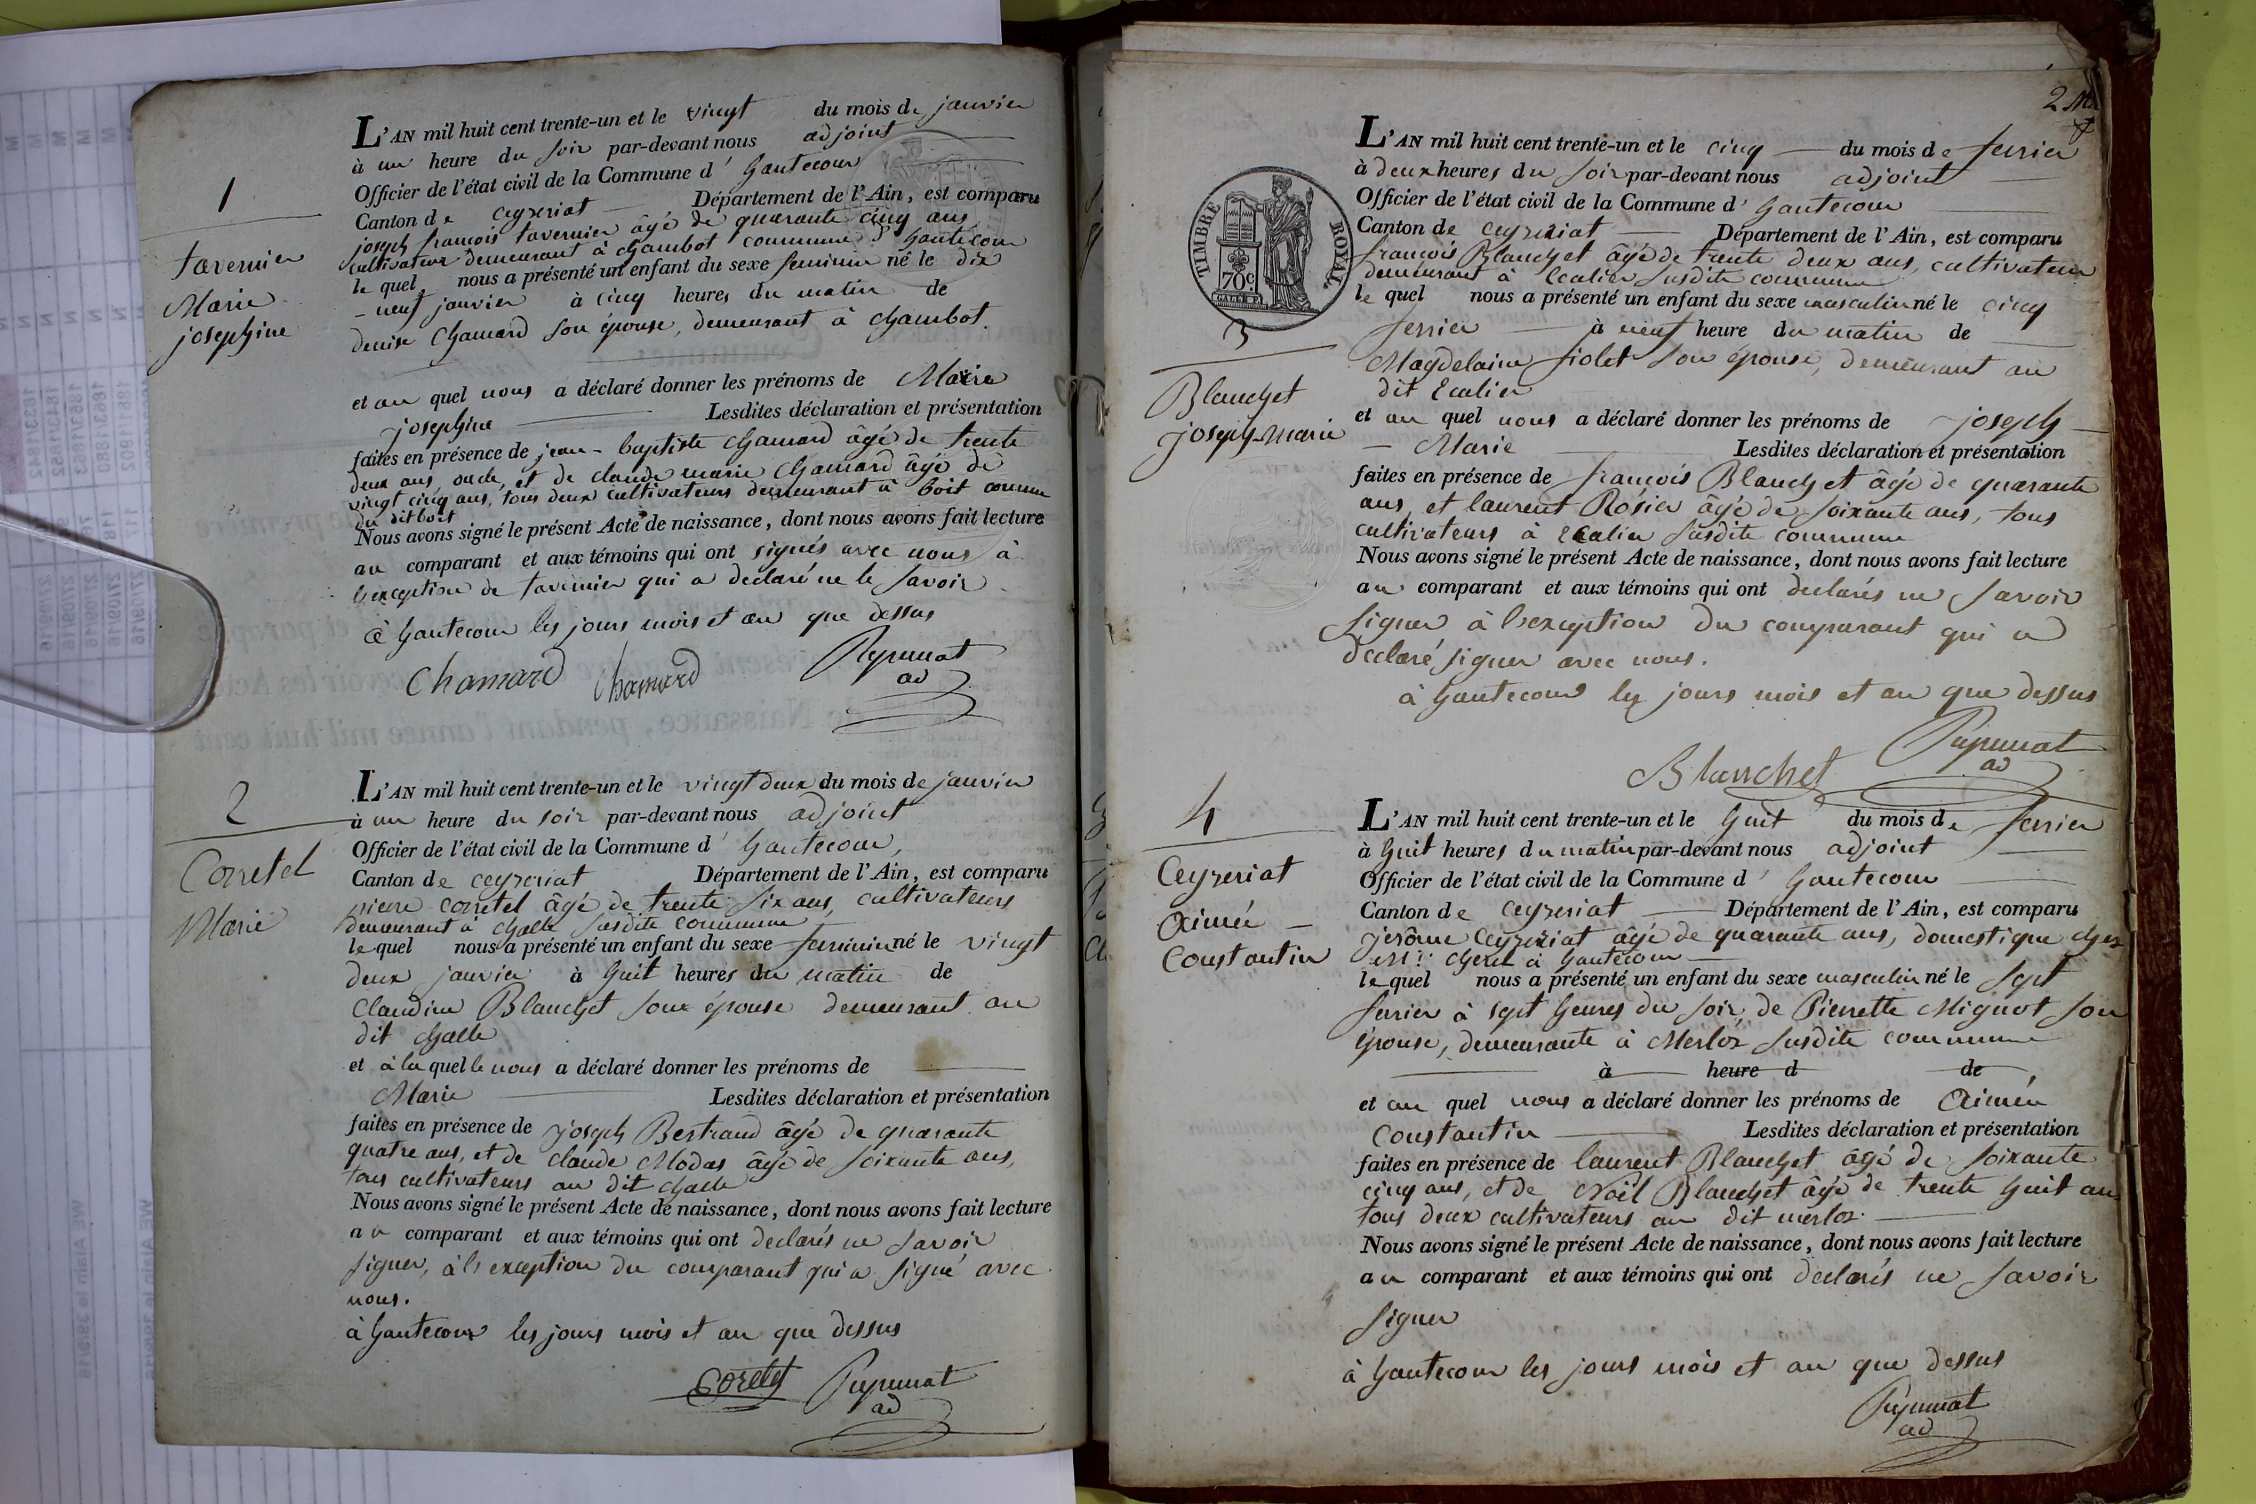 1
tavernier
Marie
josephine
L'AN mil huit cent trente-un et le vingt du mois de janvier
à un heure du soir par-devant nous adjoint
Officier de l'état civil de la Commune d' hautecour
Canton de ceyzeriat Département de l'Ain, est comparu
joseph françois tavernier âgé de quarante cinq ans
cultivateur demeurant à chambot commune d'hautecour
le quel nous a présenté un enfant du sexe feminin né le dix
- neuf janvier à cinq heures du matin de
denise Chamard son épouse, demeurant à chambot.
et au quel nous a déclaré donner les prénoms de Marie
josephine Lesdites déclaration et présentation
faites en présence de jean-baptiste chamard âgé de trente
deux ans, oncle, et de claude marie Chamard âgé de
vingt cinq ans, tous deux cultivateurs demeurant à boit commune
du dit boit
Nous avons signé le présent Acte de naissance, dont nous avons fait lecture
au comparant et aux témoins qui ont signés avec nous à
l'exception de tavernier qui a declaré ne le savoir
à hautecour les jours mois et an que dessus
Chamard Chamard Pupunat
ad
2
Corretel
Marie
L'AN mil huit cent trente-un et le vingt deux du mois de janvier
à un heure du soir par-devant nous adjoint
Officier de l'état civil de la Commune d' hautecour,
Canton de ceyzeriat Département de l'Ain, est comparu
pierre corretel âgé de trente six ans, cultivateurs
demeurant à challe susdite commune
le quel nous a présenté un enfant du sexe feminin né le vingt
deux janvier à huit heures du matin de
Claudine Blanchet son épouse demeurant au
dit challe
et à la quelle nous a déclaré donner les prénoms de
Marie Lesdites déclaration et présentation
faites en présence de joseph Bertrand âgé de quarante
quatre ans, et de claude Modas âgé de soixante ans,
tous cultivateurs au dit challe
Nous avons signé le présent Acte de naissance, dont nous avons fait lecture
au comparant et aux témoins qui ont declarés ne savoir
signer, à l'exception du comparant qui a signé avec
nous.
à hautecour les jours mois et an que dessus
Coretet Pupunat
ad
2
TIMBRE ROYAL
70c
3
Blanchet
joseph-marie
L'AN mil huit cent trente-un et le cinq du mois de fevrier
à deux heures du soir par-devant nous adjoint
Officier de l'état civil de la Commune d' hautecour
Canton de ceyzeriat Département de l'Ain, est comparu
françois Blanchet âgé de trente deux ans, cultivateur
demeurant à Ecalier susdite commune
le quel nous a présenté un enfant du sexe masculin né le cinq
fevrier à neuf heure du matin de
Magdelaine fiolet son épouse, demeurant au
dit Ecalier
et au quel nous a déclaré donner les prénoms de joseph
- Marie Lesdites déclaration et présentation
faites en présence de françois Blanchet âgé de quarante
ans, et laurent Rosier âgé de soixante ans, tous
cultivateurs à Ecalier susdite commune
Nous avons signé le présent Acte de naissance, dont nous avons fait lecture
au comparant et aux témoins qui ont declarés ne savoir
signer à l'exception du comparant qui a
declaré signer avec nous.
à hautecour les jours mois et an que dessus
Blanchet Pupunat
ad
4
Ceyzeriat
Aimée -
Constantin
L'AN mil huit cent trente-un et le huit du mois de fevrier
à huit heures du matin par-devant nous adjoint
Officier de l'état civil de la Commune d' hautecour
Canton de ceyzeriat Département de l'Ain, est comparu
jerôme Ceyzeriat âgé de quarante ans, domestique chez
à hautecour
le quel nous a présenté un enfant du sexe masculin né le sept
fevrier à sept heures du soir, de Pierrette Mignot son
épouse, demeurante à Merloz susdite commune
à heure d de
et au quel nous a déclaré donner les prénoms de Aimée
Constantin Lesdites déclaration et présentation
faites en présence de laurent Blanchet âgé de soixante
cinq ans, et de Noël Blanchet âgé de trente huit ans
tous deux cultivateurs au dit merloz.
Nous avons signé le présent Acte de naissance, dont nous avons fait lecture
au comparant et aux témoins qui ont declarés ne savoir
signer
à hautecour les jours mois et an que dessus
Pupunat
ad